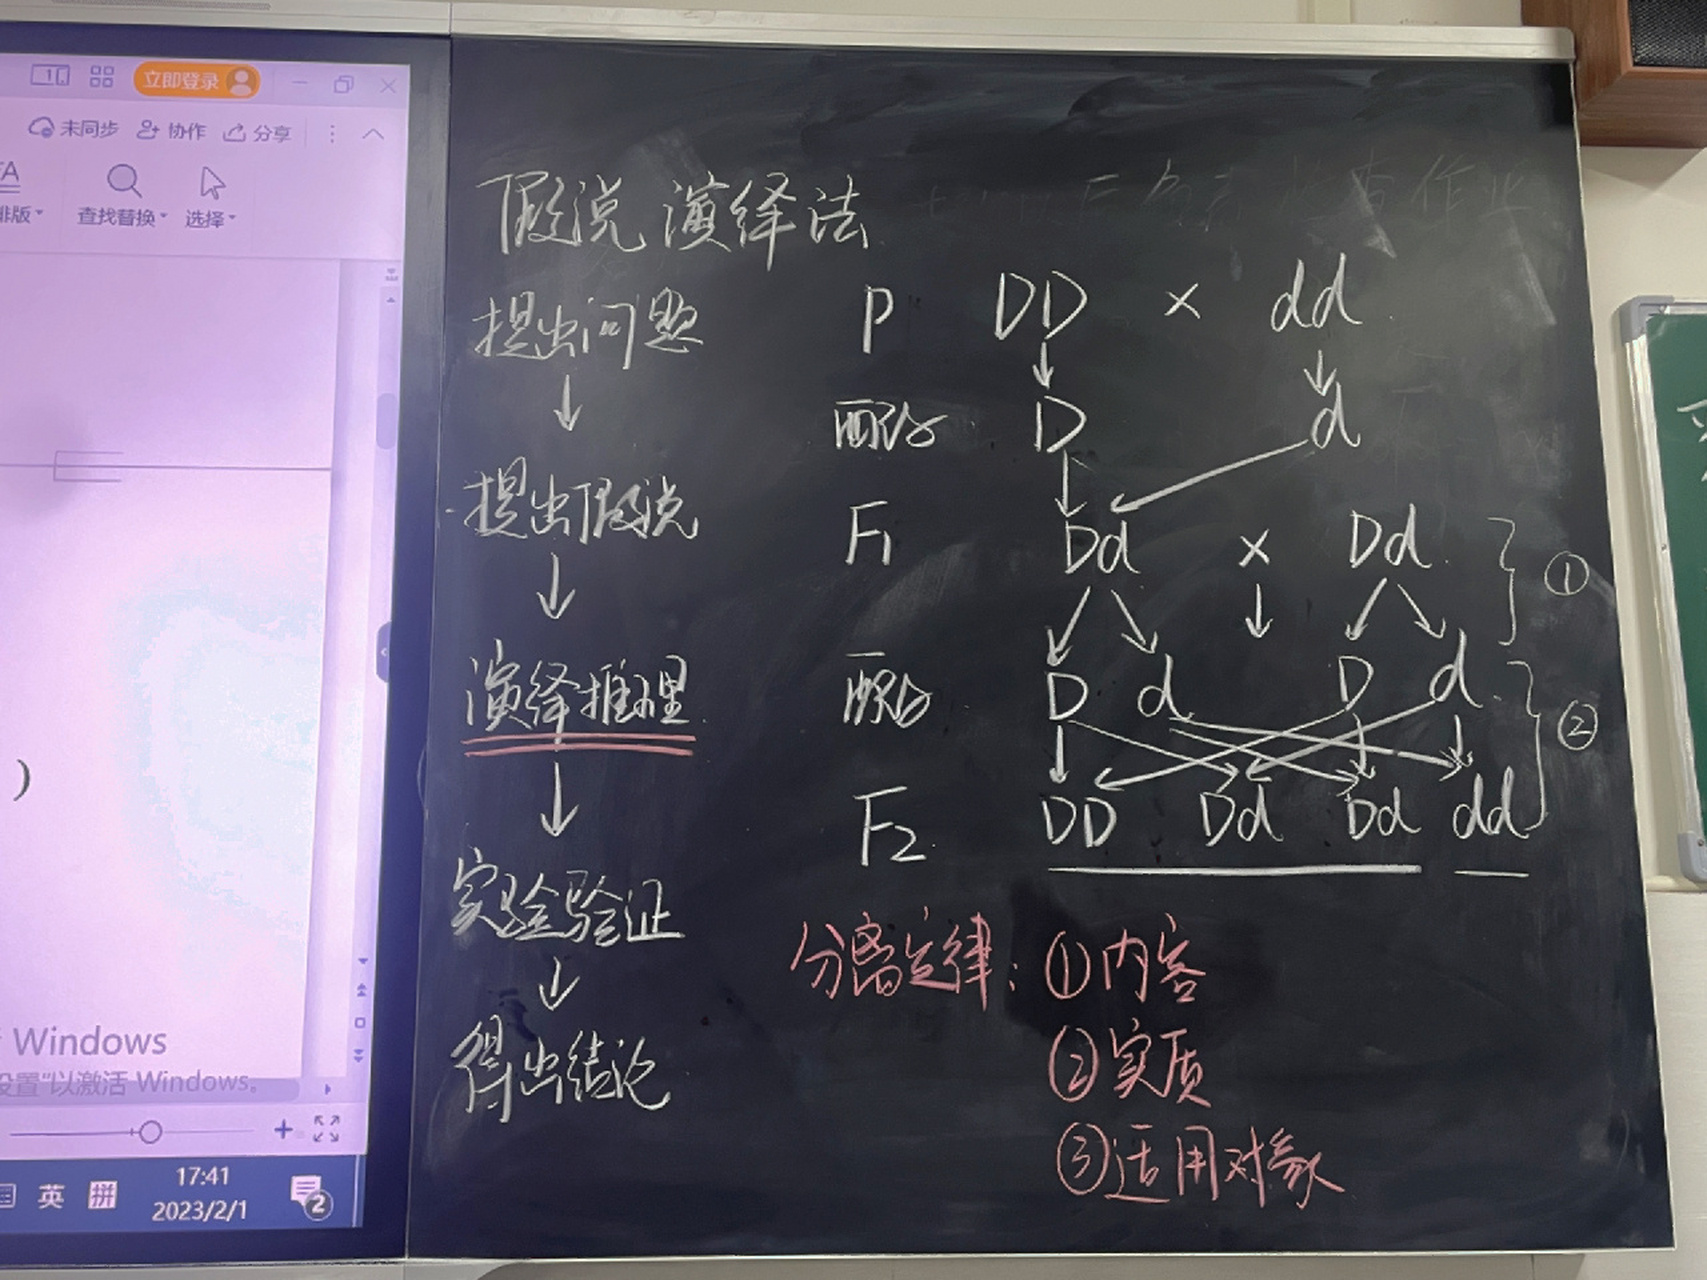 1
立即登录
未同步 协作 分享
排版 查找替换 选择
)
Windows
设置"以激活 Windows。
英 拼 17:41
2023/2/1
2
假说演绎法
提出问题
↓
提出假说
↓
演绎推理
↓
实验验证
↓
得出结论
P DD × dd
配子 D d
F1 Dd × Dd ①
配子 D d D d ②
F2 DD Dd Dd dd
分离定律:①内容
②实质
③适用对象